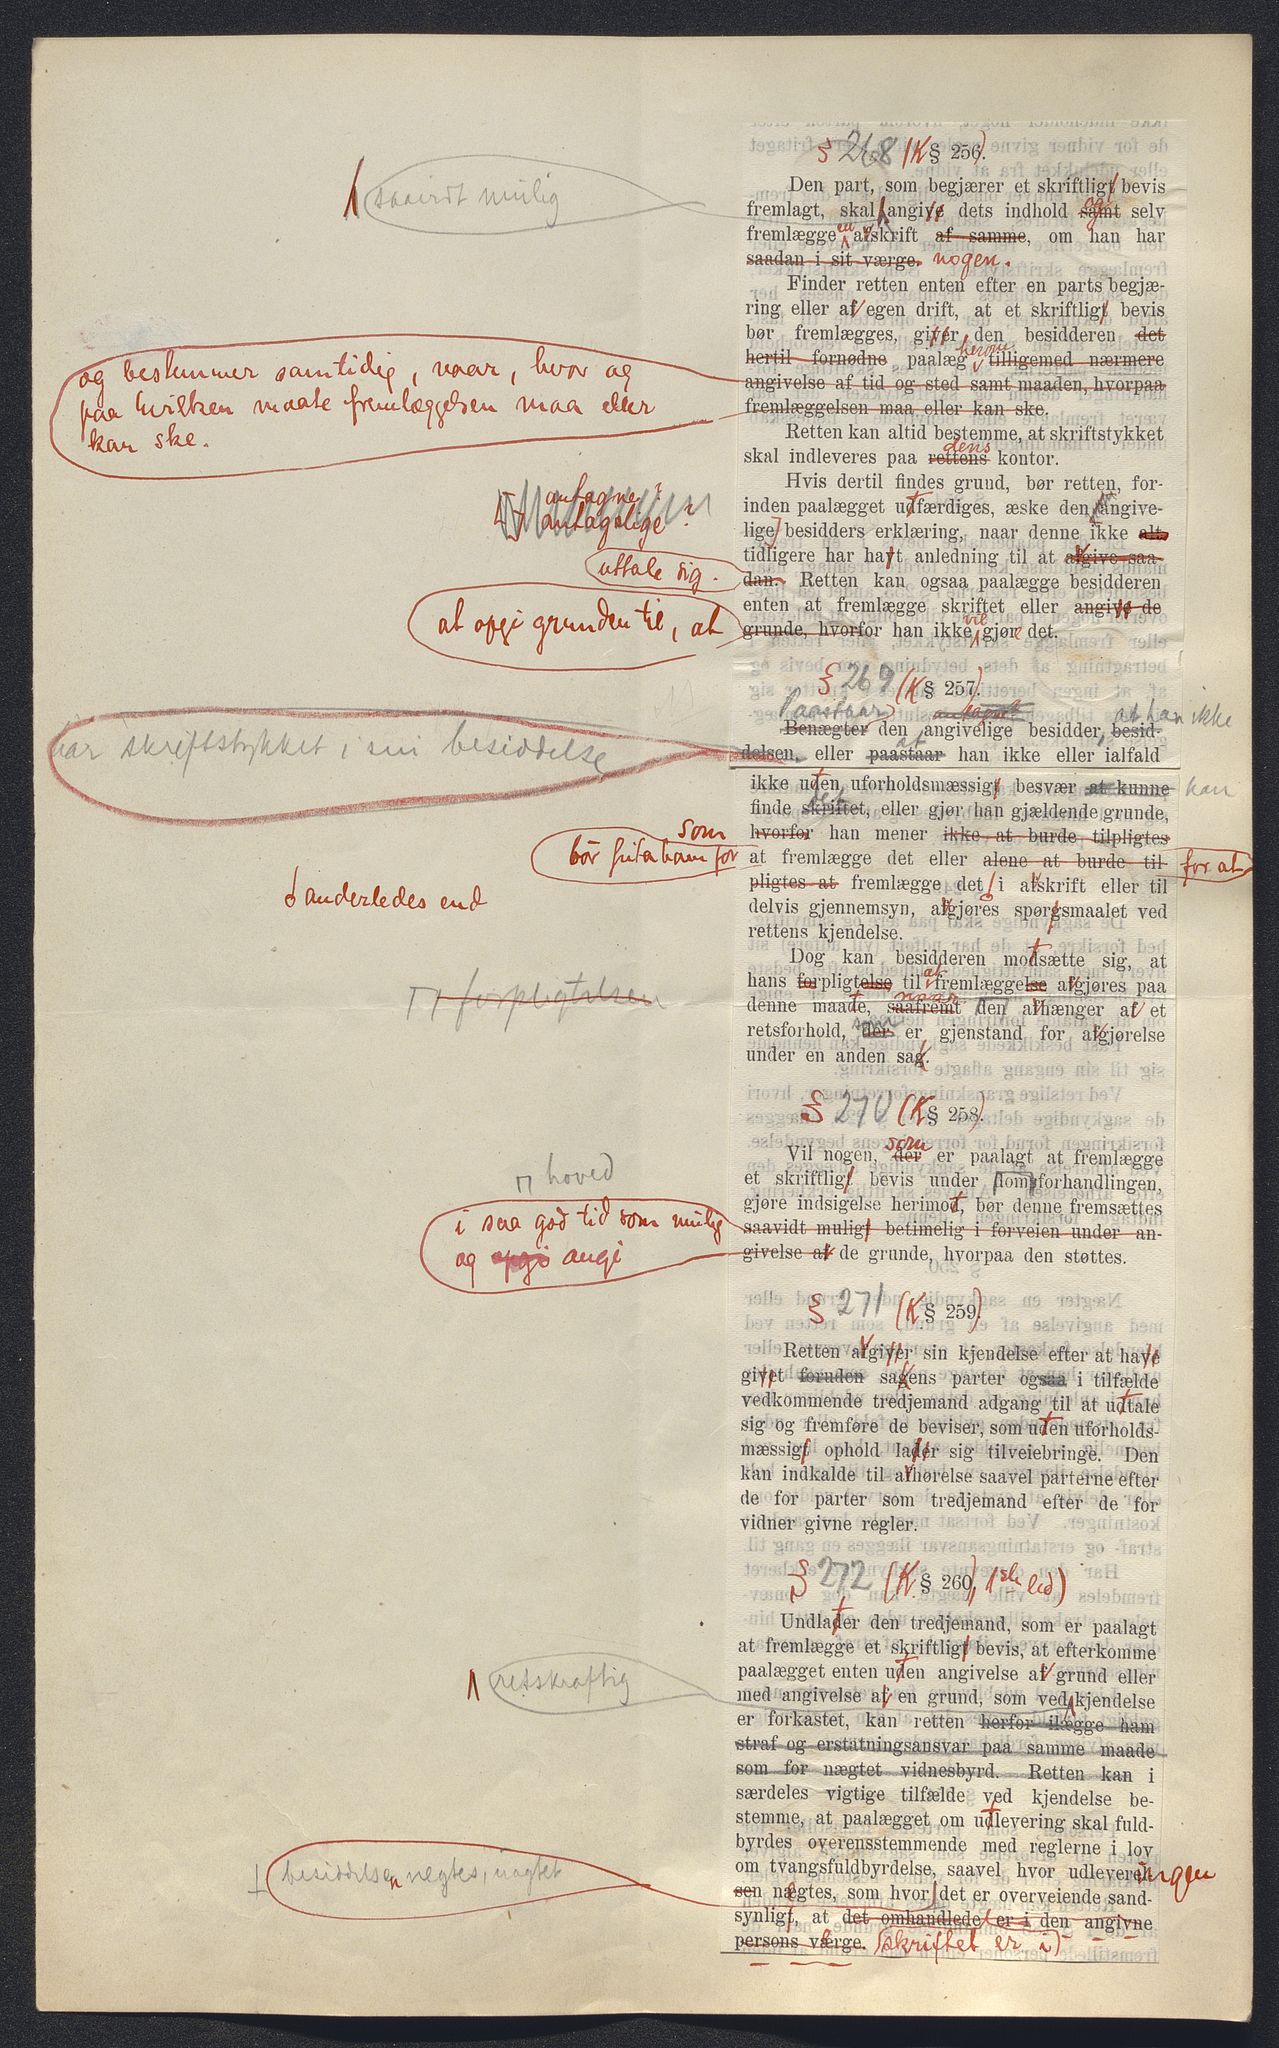 § 268 (K § 256).
saavidt mulig
Den part, som begjærer et skriftligt bevis
fremlagt, skal angive dets indhold samt og selv
fremlægge en afskrift af samme, om han har
saadan i sit værge. nogen.
Finder retten enten efter en parts begjæ-
ring eller af egen drift, at et skriftligt bevis
bør fremlægges, giver den besidderen det
hertil fornødne paalæg herom tilligemed nærmere
angivelse af tid og sted samt maaden, hvorpaa
fremlæggelsen maa eller kan ske.
og bestemmer samtidig, naar, hvor og
paa hvilken maate fremlæggelsen maa eller
kan ske.
Retten kan altid bestemme, at skriftstykket
skal indleveres paa rettens dens kontor.
Hvis dertil findes grund, bør retten, for-
inden paalægget udfærdiges, æske den angive-
lige besidders erklæring, naar denne ikke alt
tidligere har havt anledning til at afgive saa-
dan. Retten kan ogsaa paalægge besidderen
enten at fremlægge skriftet eller angive de
grunde, hvorfor han ikke vil gjøre det.
antagne?
antagelige?
uttale sig.
at opgi grunden til, at
§ 269 (K § 257).
Paastaar
Benægter den angivelige besidder, besid- at han ikke
delsen, eller paastaar at han ikke eller ialfald
har skriftstykket i sin besiddelse
ikke uden uforholdsmæssigt besvær at kunne kan
finde skriftet, det eller gjør han gjældende grunde,
hvorfor som han mener ikke at burde tilpligtes
bør frita ham for
at fremlægge det eller alene at burde til- for at
pligtes at fremlægge det i afskrift eller til
delvis gjennemsyn, afgjøres spørgsmaalet ved
rettens kjendelse.
anderledes end
Dog kan besidderen modsætte sig, at
hans forpligtelse til at fremlæggelse afgjøres paa
denne maade, saafremt naar den afhænger af et
retsforhold, der som er gjenstand for afgjørelse
under en anden sag.
forpligtelsen
§ 270 (K § 258).
Vil nogen, der som er paalagt at fremlægge
et skriftligt bevis under domsforhandlingen,
hoved
gjøre indsigelse herimod, bør denne fremsættes
saavidt muligt betimelig i forveien under an-
givelse af de grunde, hvorpaa den støttes.
i saa god tid som mulig
og opgi angi
§ 271 (K § 259)
Retten afgiver sin kjendelse efter at have
givet foruden sagens parter ogsaa i tilfælde
vedkommende tredjemand adgang til at udtale
sig og fremføre de beviser, som uden uforholds-
mæssigt ophold lader sig tilveiebringe. Den
kan indkalde til afhørelse saavel parterne efter
de for parter som tredjemand efter de for
vidner givne regler.
§ 272 (K § 260, 1ste led)
Undlader den tredjemand, som er paalagt
at fremlægge et skriftligt bevis, at efterkomme
paalægget enten uden angivelse af grund eller
med angivelse af en grund, som ved kjendelse
retskraftig
er forkastet, kan retten herfor ilægge ham
straf og erstatningsansvar paa samme maade
som for nægtet vidnesbyrd. Retten kan i
særdeles vigtige tilfælde ved kjendelse be-
stemme, at paalægget om udlevering skal fuld-
byrdes overensstemmende med reglerne i lov
om tvangsfuldbyrdelse, saavel hvor udleverel- ingen
sen nægtes, som hvor det er overveiende sand-
besiddelsen negtes, uagtet
synligt, at det omhandlede er i den angivne
persons værge. (skriftet er i)